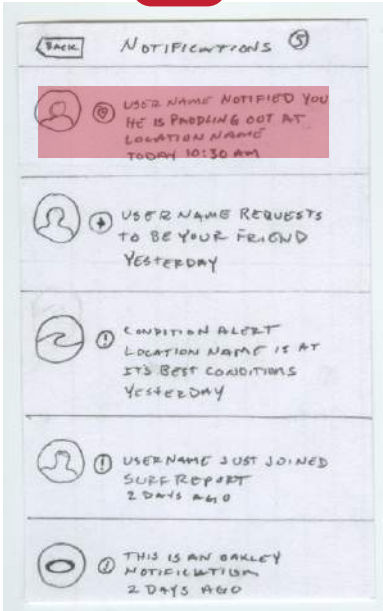 BACK
NOTIFICATIONS 5
USER NAME NOTIFIED YOU
HE IS PADDLING OUT AT
LOCATION NAME
TODAY 10:30 AM
USER NAME REQUESTS
TO BE YOUR FRIEND
YESTERDAY
CONDITION ALERT
LOCATION NAME IS AT
IT'S BEST CONDITIONS
YESTERDAY
USERNAME JUST JOINED
SURF REPORT
2 DAYS AGO
THIS IS AN OAKLEY
NOTIFICATION
2 DAYS AGO